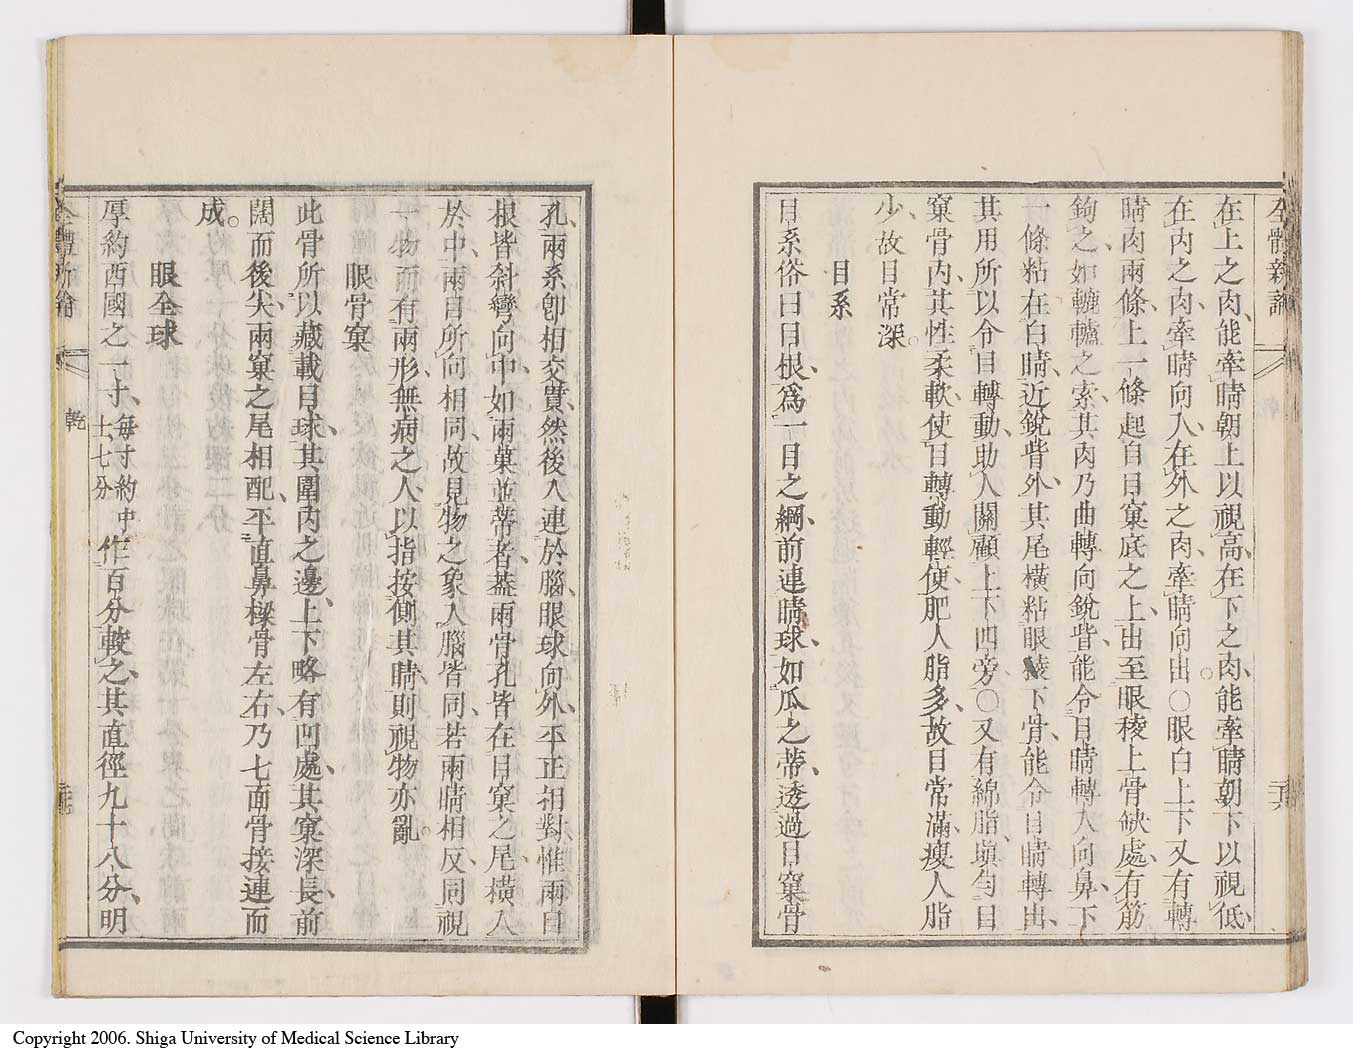 全體新論
在上之肉、能牽睛朝上以視高、在下之肉、能牽睛朝下以視低、
在內之肉、牽睛向入、在外之肉、牽睛向出。○眼白上下又有轉
睛肉兩條、上一條起自目窠底之上、出至眼稜上骨缺處、有筋
鉤之、如轆轤之索、其肉乃曲轉向銳眥、能令目睛轉入向鼻、下
一條粘在白睛、近銳眥外、其尾橫粘眼稜下骨、能令目睛轉出、
其用所以令目轉動、助人關顧上下四旁○又有綿脂塡勻目
窠骨內、其性柔軟、使目轉動輕便、肥人脂多、故目常滿、瘦人脂
少、故目常深。
目系
目系俗曰目根、爲一目之綱、前連睛球、如瓜之蒂、透過目窠骨
孔、兩系卽相交貫、然後入連於腦、眼球向外、平正相對、惟兩目
根皆斜彎向中、如兩菓並蒂者、蓋兩骨孔皆在目窠之尾、橫入
於中、兩目所向相同、故見物之象入腦皆同、若兩睛相反、同視
一物而有兩形、無病之人、以指按側其睛、則視物亦亂。
眼骨窠
此骨所以藏載目球、其圍內之邊、上下略有凹處、其窠深長、前
闊而後尖、兩窠之尾相配、平直鼻樑骨左右、乃七面骨接連而
成。
眼全球
厚約西國之一寸、每寸約中土七分作百分較之、其直徑九十八分、明
全體新論
乾